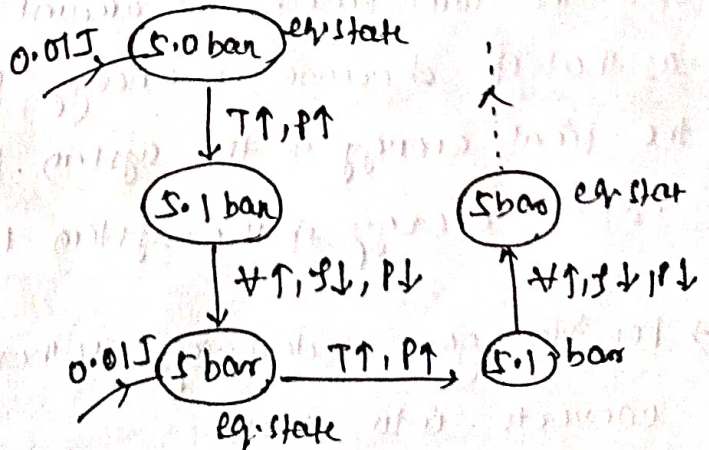 0.01J 5.0 bar eq. state
T↑, P↑
5.1 bar
V↑, ρ↓, P↓
0.01J 5 bar
eq. state
T↑, P↑
5.1 bar
V↑, ρ↓, P↓
5 bar eq. stat